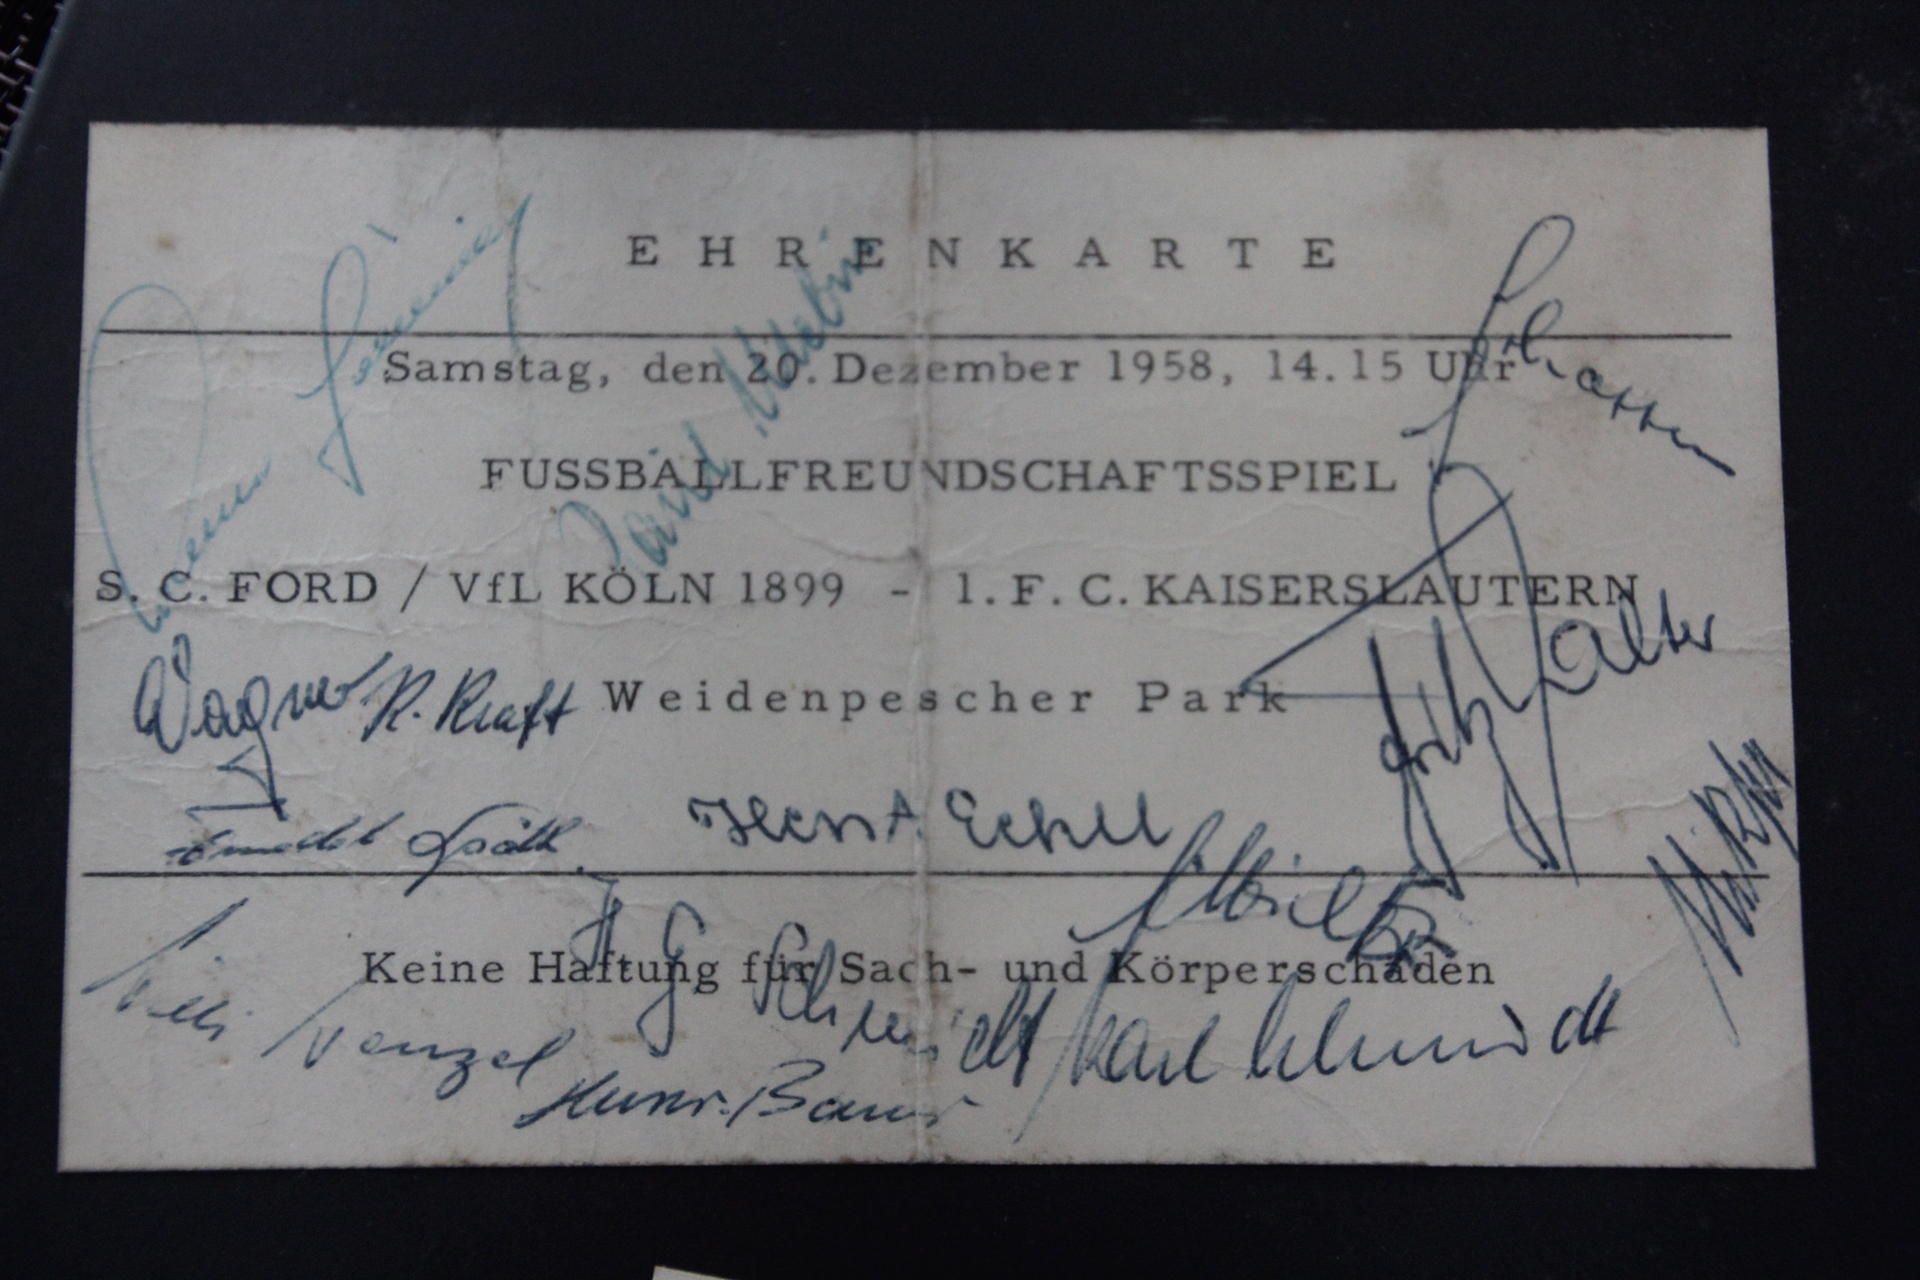 EHRENKARTE
Samstag, den 20. Dezember 1958, 14.15 Uhr
FUSSBALLFREUNDSCHAFTSSPIEL
S. C. FORD / VfL KÖLN 1899 - 1. F. C. KAISERSLAUTERN
Fritz Walter
Wagner R. Kraft Weidenpescher Park
Horst Eckel
Keine Haftung für Sach- und Körperschäden
H. G. Schmidt Karl Schmidt
Willi Wenzel
Bauer